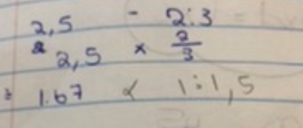 2,5 - 2:3
2,5 × 2/3
1.67 < 1:1,5